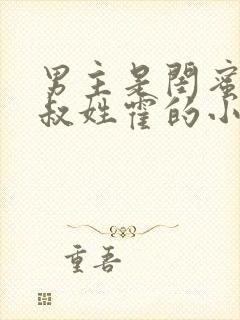 男主是闺蜜
叔姓霍的小
重吾